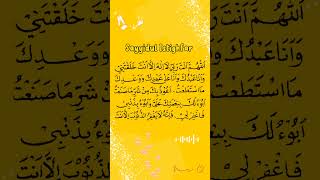 Sayyidul Istighfar
اَللّٰهُمَّ اَنْتَ رَبِّيْ لَآ اِلٰهَ اِلَّا اَنْتَ خَلَقْتَنِيْ
وَاَنَا عَبْدُكَ وَاَنَا عَلٰى عَهْدِكَ وَوَعْدِكَ
مَا اسْتَطَعْتُ اَعُوْذُبِكَ مِنْ شَرِّ مَا صَنَعْتُ
اَبُوْءُ لَكَ بِنِعْمَتِكَ عَلَيَّ وَاَبُوْءُ بِذَنْبِيْ
فَاغْفِرْ لِيْ فَاِنَّهُ لَا يَغْفِرُ الذُّنُوْبَ اِلَّا اَنْتَ